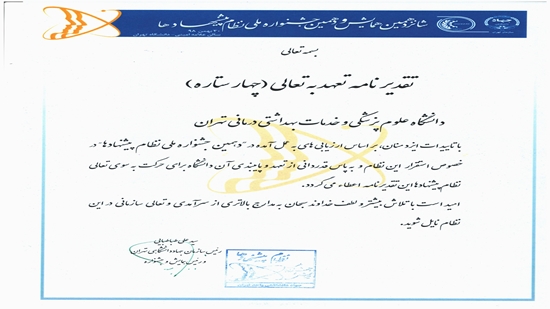 شانزدهمین همایش و دهمین جشنواره ملی نظام پیشنهادها
بسمه تعالی
تقدیرنامه تعهد به تعالی (چهار ستاره)
دانشگاه علوم پزشکی و خدمات بهداشتی درمانی تهران
با تاییدات ایزد منان، بر اساس ارزیابی های به عمل آمده در "دهمین جشنواره ملی نظام پیشنهادها" در
خصوص استقرار این نظام و به پاس قدردانی از تعهد و پایبندی آن دانشگاه برای حرکت به سوی تعالی
نظام پیشنهادها این تقدیرنامه اعطاء می گردد.
امید است با تلاش بیشتر و لطف خداوند سبحان به مدارج بالاتری از سرآمدی و تعالی سازمانی در این
نظام نایل شوید.
رئیس سازمان جهاد دانشگاهی تهران
و رئیس همایش و جشنواره